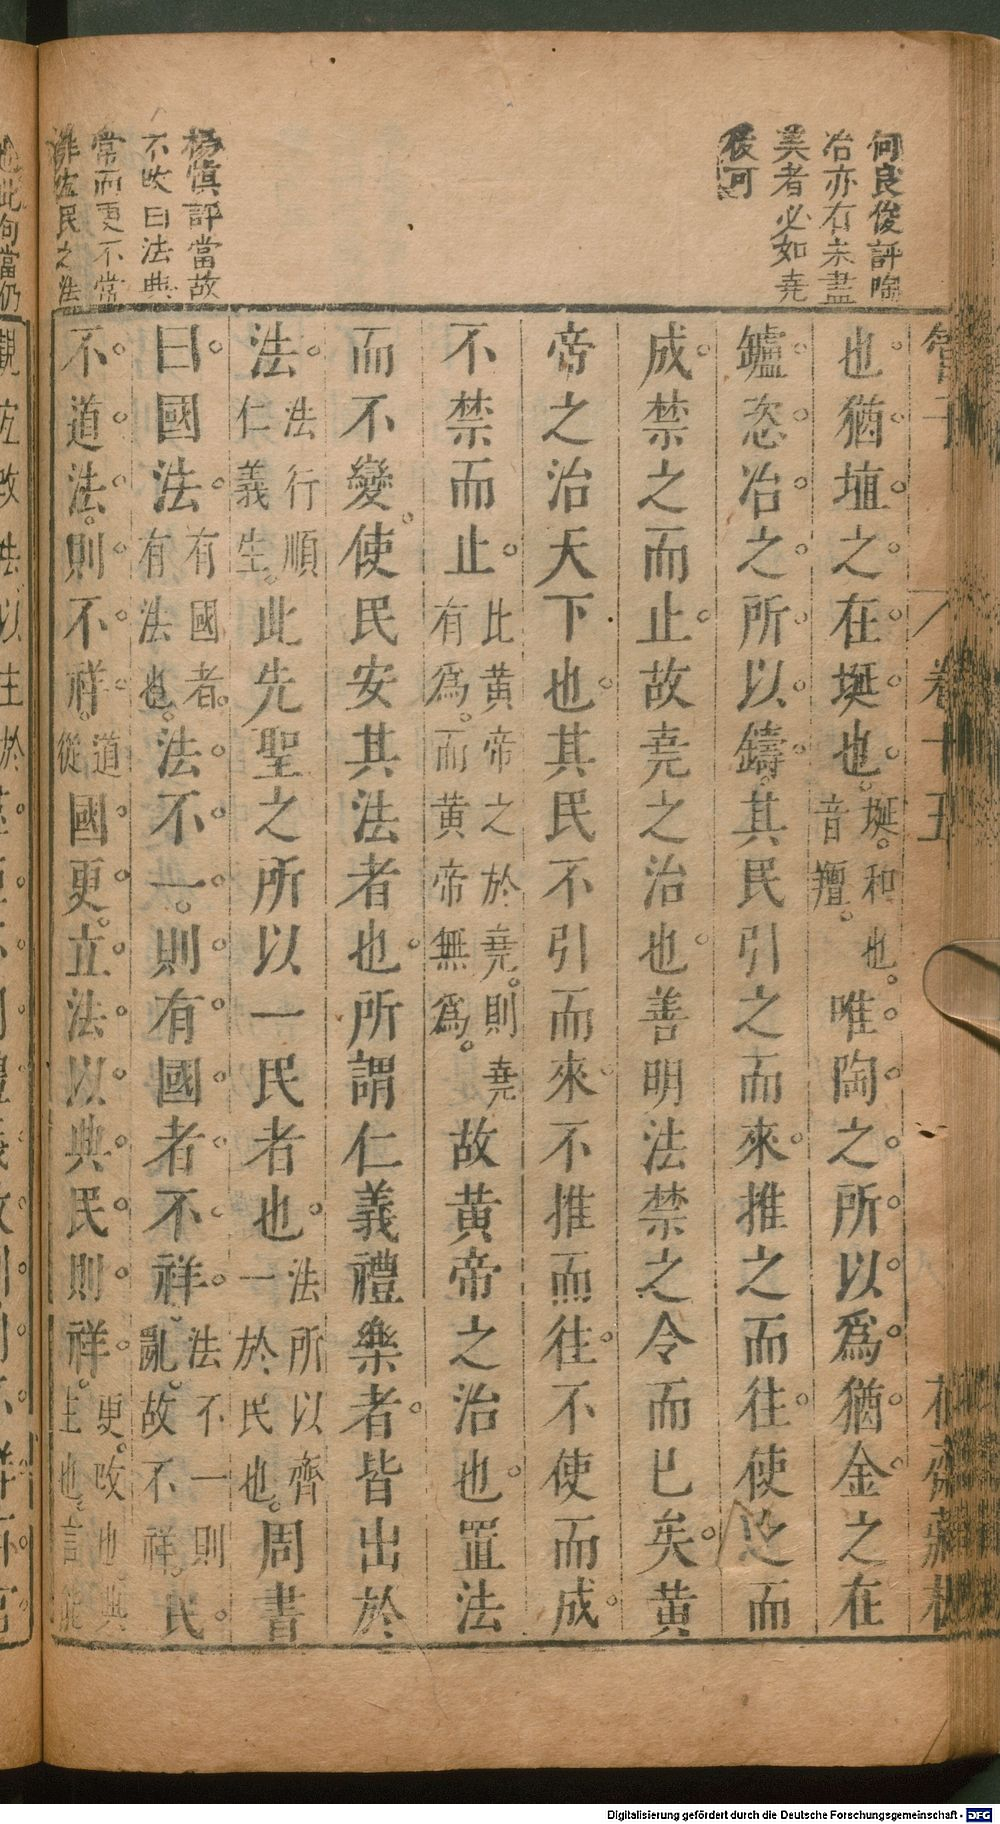 何良俊評陶
冶亦有未盡
美者必如堯
後可
楊慎評當故
不改曰法典
常而更不常
非宏民之法
管子
卷十五
花齋藏板
也猶埴之在埏也埏和也音羶唯陶之所以爲猶金之在
鑪恣冶之所以鑄其民引之而來推之而往使之而
成禁之而止故堯之治也善明法禁之令而已矣黃
帝之治天下也其民不引而來不推而往不使而成
不禁而止比黃帝之於堯則堯有爲而黃帝無爲故黃帝之治也置法
而不變使民安其法者也所謂仁義禮樂者皆出於
法法行順仁義生此先聖之所以一民者也法所以齊一於民也周書
曰國法有國者有法也法不一則有國者不祥法不一則亂故不祥民
不道法則不祥道從國更立法以典民則祥更改也典主也言能
也此句當仍
Digitalisierung gefördert durch die Deutsche Forschungsgemeinschaft - DFG